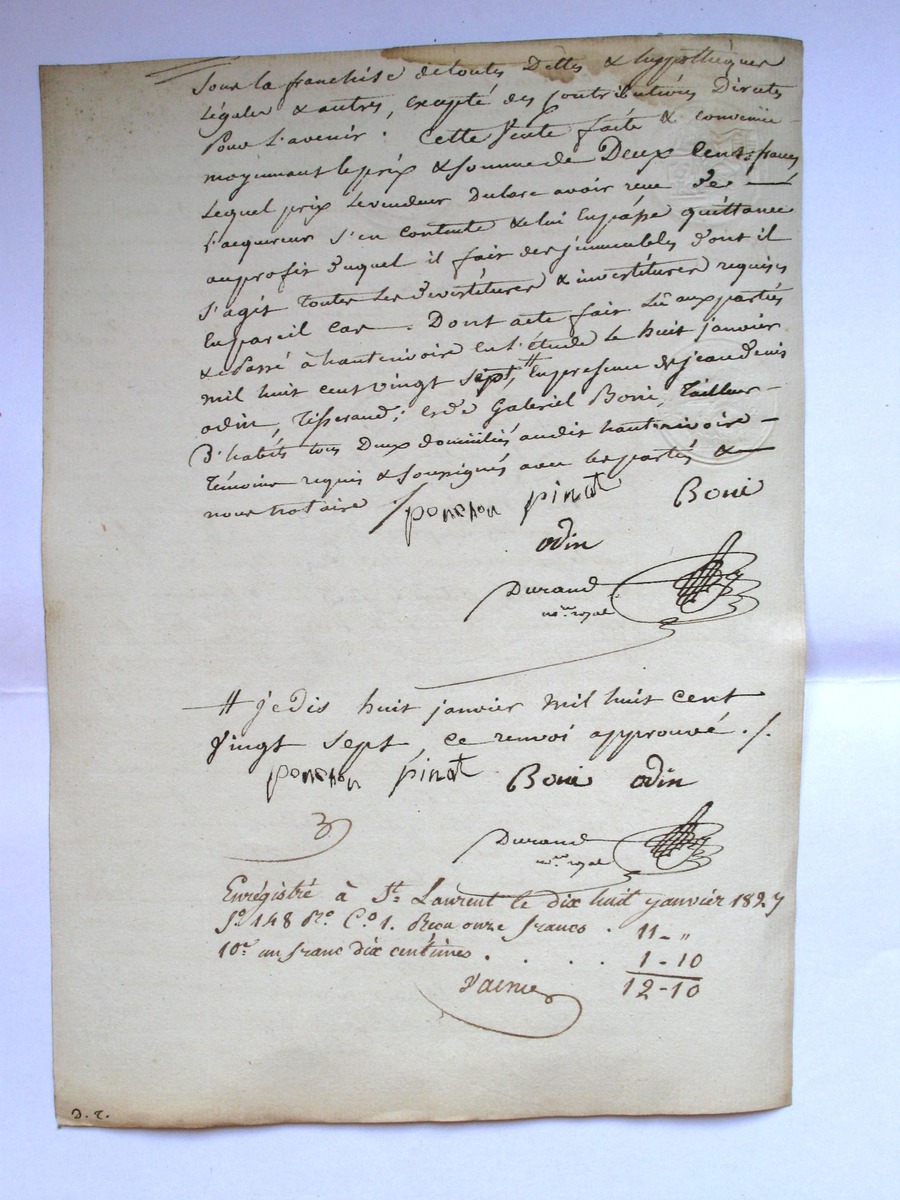 Sous la franchise de toutes Dettes & hyppothèques
Légales & autres, excepté des contributions Directes
Pour L'avenir. Cette Vente faite & convenue
moyennant le prix & somme de Deux Cents francs
Lequel prix Le vendeur Declare avoir reçu de
L'acquereur S'en contente & lui En passe quittance
au profit Duquel il fait des jmmeubles Dont il
S'agit Toutes Les Devestitures & investitures requises
En pareil cas. Dont acte fait Lû aux parties
& Passé à hauterivoire En L'étude le huit janvier
mil huit cent vingt sept, # En presence de jean denis
odin, Tisserand; & de Gabriel Boni, Tailleur
D'habits tous Deux domiciliés audit hauterivoire
Témoins requis & Soussignés avec les parties &
nous notaire ./.
ponchon pinat Boni
odin
Durand
n.re royal
# je dis huit janvier mil huit cent
Vingt sept, ce renvoi approuvé ./.
ponchon pinat Boni odin
3
Durand
n.re royal
Enrégistré à St. Laurent le dix huit janvier 1827
f.o 148 R.o C.o 1. Reçu onze francs . 11 - "
10.e un franc dix centimes . . . . 1 - 10
12 - 10
D. r.